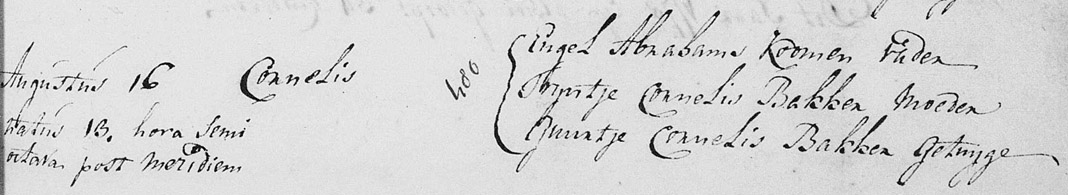 Augustus 16 Cornelis
natus 13. hora semi
octava post meridiem
480
Engel Abrahams Koomen vader
Tryntje Cornelis Bakker Moeder
Guurtje Cornelis Bakker Getuyge